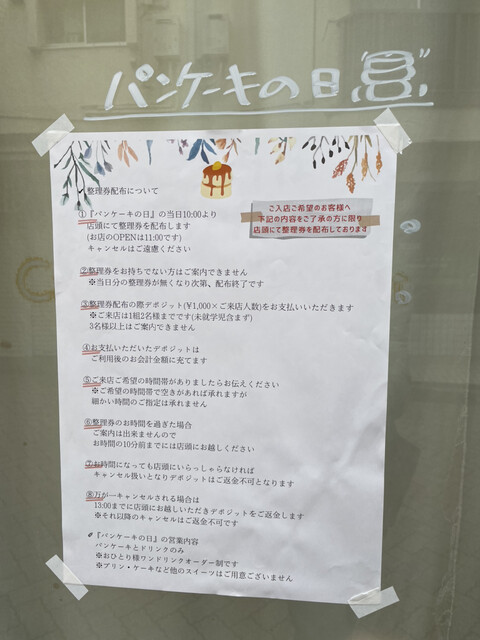 パンケーキの日
整理券配布について
ご入店ご希望のお客様へ
下記の内容をご了承の方に限り
店頭にて整理券を配布しております
①『パンケーキの日』の当日10:00より
店頭にて整理券を配布します
(お店のOPENは11:00です)
キャンセルはご遠慮ください
②整理券をお持ちでない方はご案内できません
※当日分の整理券が無くなり次第、配布終了です
③整理券配布の際デポジット(¥1,000×ご来店人数)をお支払いいただきます
※ご来店は1組2名様までです(未就学児含まず)
3名様以上はご案内できません
④お支払いただいたデポジットは
ご利用後のお会計金額に充てます
⑤ご来店ご希望の時間帯がありましたらお伝えください
※ご希望の時間帯で空きがあれば承れますが
細かい時間のご指定は承れません
⑥整理券のお時間を過ぎた場合
ご案内は出来ませんので
お時間の10分前までには店頭にお越しください
⑦お時間になっても店頭にいらっしゃらなければ
キャンセル扱いとなりデポジットはご返金不可となります
⑧万が一キャンセルされる場合は
13:00までに店頭にお越しいただきデポジットをご返金します
※それ以降のキャンセルはご返金不可です
『パンケーキの日』の営業内容
パンケーキとドリンクのみ
※おひとり様ワンドリンクオーダー制です
※プリン・ケーキなど他のスイーツはご用意ございません